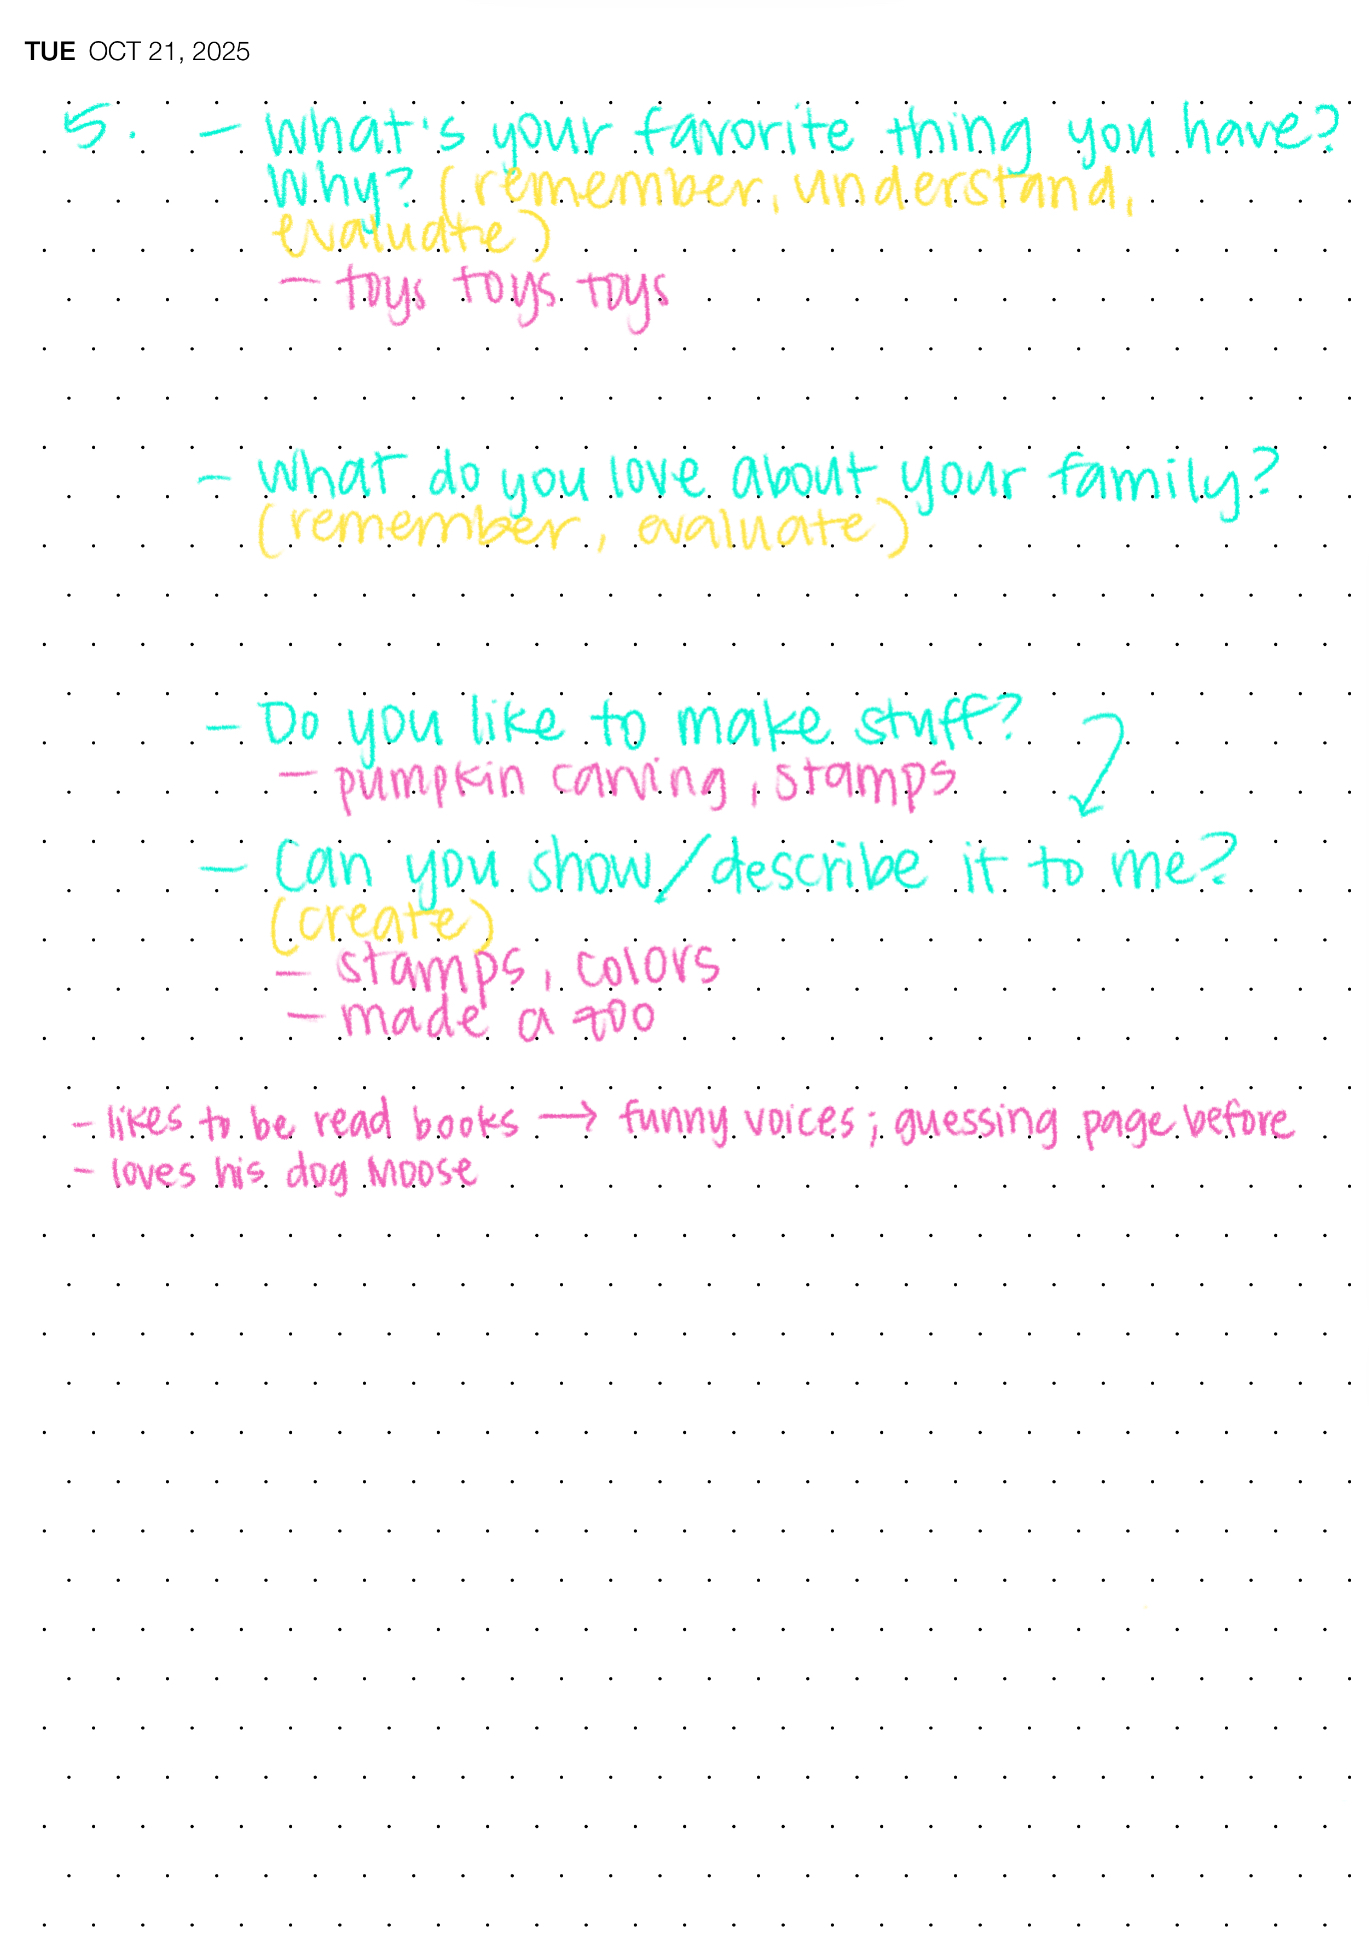 TUE OCT 21, 2025
5. - What's your favorite thing you have?
Why? (remember, understand,
evaluate)
- toys toys toys
- What do you love about your family?
(remember, evaluate)
- Do you like to make stuff?
- pumpkin carving, stamps
- Can you show/describe it to me?
(create)
- stamps, colors
- made a zoo
- likes to be read books → funny voices; guessing page before
- loves his dog Moose